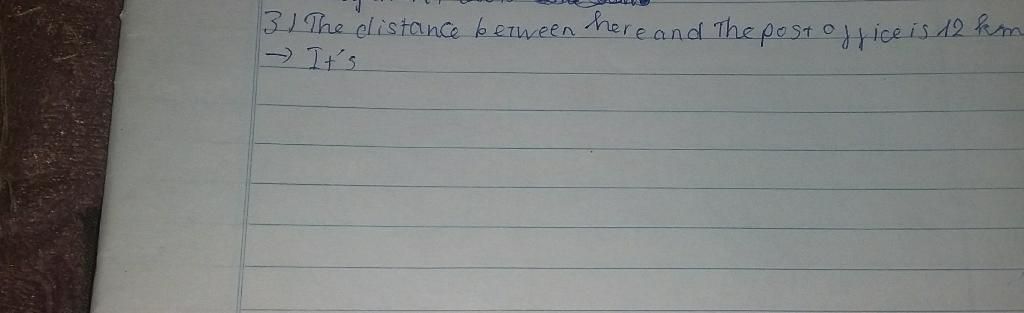 3) The distance between here and The post office is 12 km
→ It's